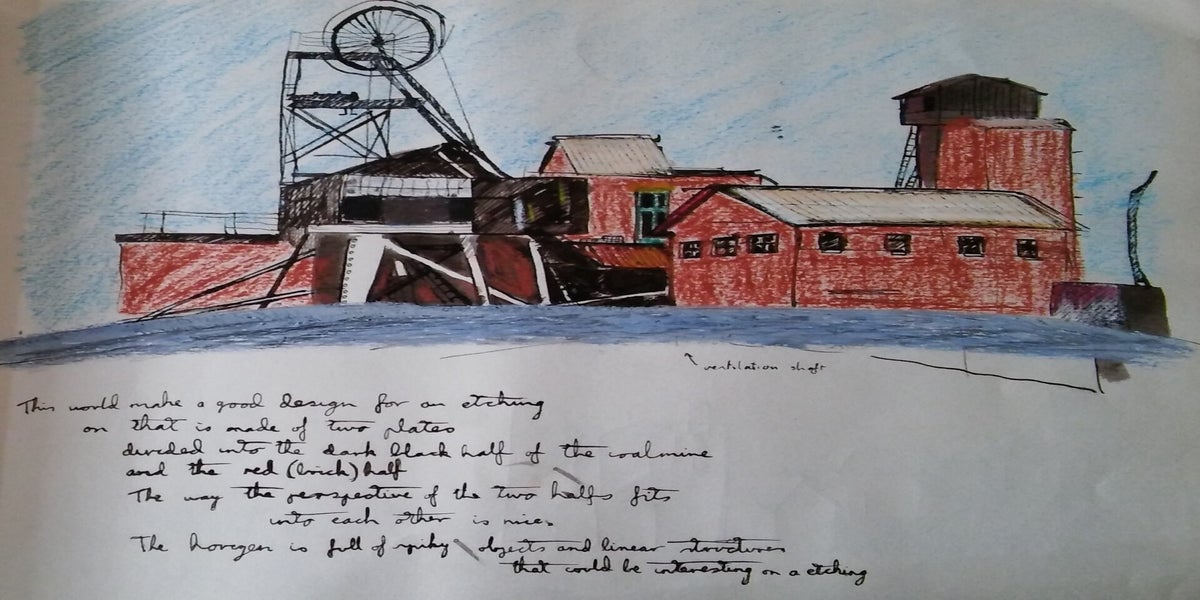 ventilation shaft
This would make a good design for an etching
on that is made of two plates
divided into the dark black half of the coalmine
and the red (brick) half
The way the perspective of the two halfs fits
into each other is nice.
The horozen is full of spiky objects and linear structures
that could be interesting on a etching